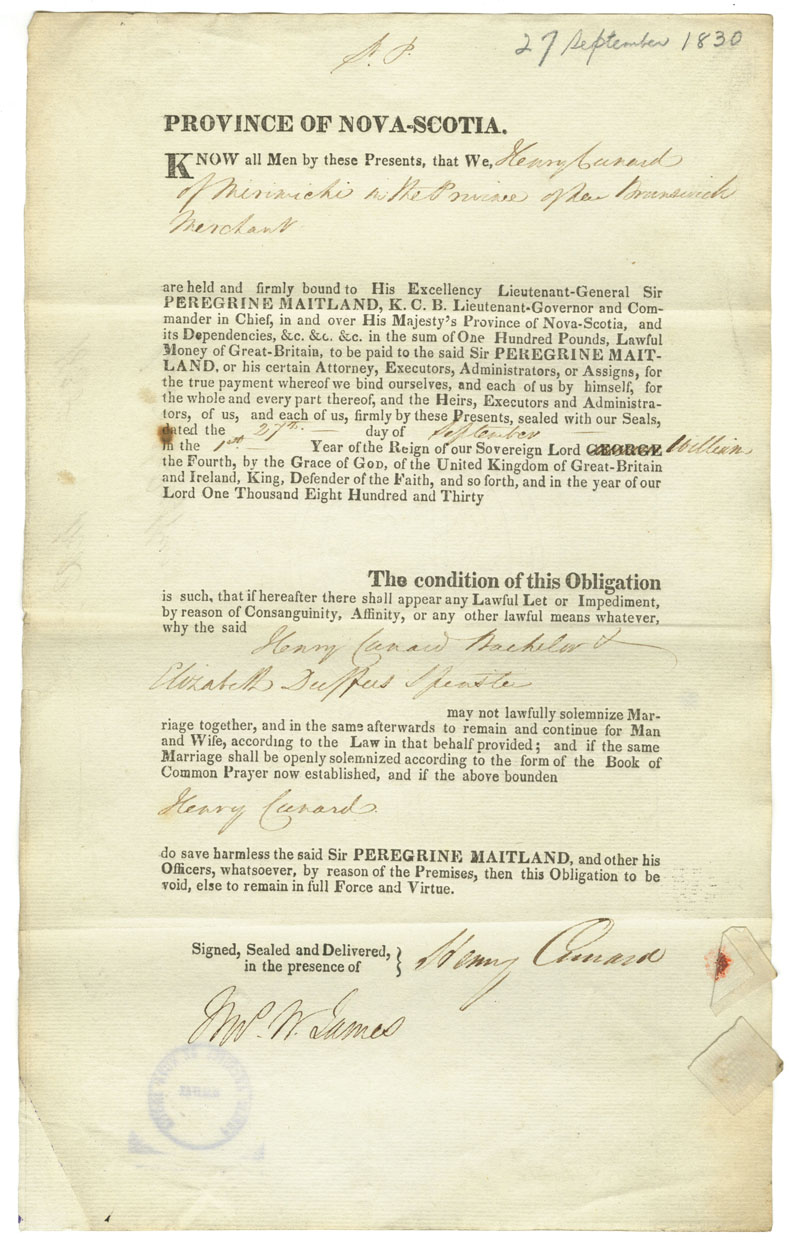 27 September 1830
PROVINCE OF NOVA-SCOTIA.
KNOW all Men by these Presents, that We, Henry Cunard
of Mirimichi in the Province of New Brunswick
Merchant
are held and firmly bound to His Excellency Lieutenant-General Sir
PEREGRINE MAITLAND, K. C. B. Lieutenant-Governor and Com-
mander in Chief, in and over His Majesty's Province of Nova-Scotia, and
its Dependencies, &c. &c. &c. in the sum of One Hundred Pounds, Lawful
Money of Great-Britain, to be paid to the said Sir PEREGRINE MAIT-
LAND, or his certain Attorney, Executors, Administrators, or Assigns, for
the true payment whereof we bind ourselves, and each of us by himself, for
the whole and every part thereof, and the Heirs, Executors and Administra-
tors, of us, and each of us, firmly by these Presents, sealed with our Seals,
dated the 27th. day of September
in the 1st Year of the Reign of our Sovereign Lord GEORGE William
the Fourth, by the Grace of GOD, of the United Kingdom of Great-Britain
and Ireland, King, Defender of the Faith, and so forth, and in the year of our
Lord One Thousand Eight Hundred and Thirty
The condition of this Obligation
is such, that if hereafter there shall appear any Lawful Let or Impediment,
by reason of Consanguinity, Affinity, or any other lawful means whatever,
why the said
Henry Cunard Bachelor &
Elizabeth Duffus Spinster
may not lawfully solemnize Mar-
riage together, and in the same afterwards to remain and continue for Man
and Wife, according to the Law in that behalf provided; and if the same
Marriage shall be openly solemnized according to the form of the Book of
Common Prayer now established, and if the above bounden
Henry Cunard
do save harmless the said Sir PEREGRINE MAITLAND, and other his
Officers, whatsoever, by reason of the Premises, then this Obligation to be
void, else to remain in full Force and Virtue.
Signed, Sealed and Delivered,
in the presence of
Henry Cunard
Thos. W. James